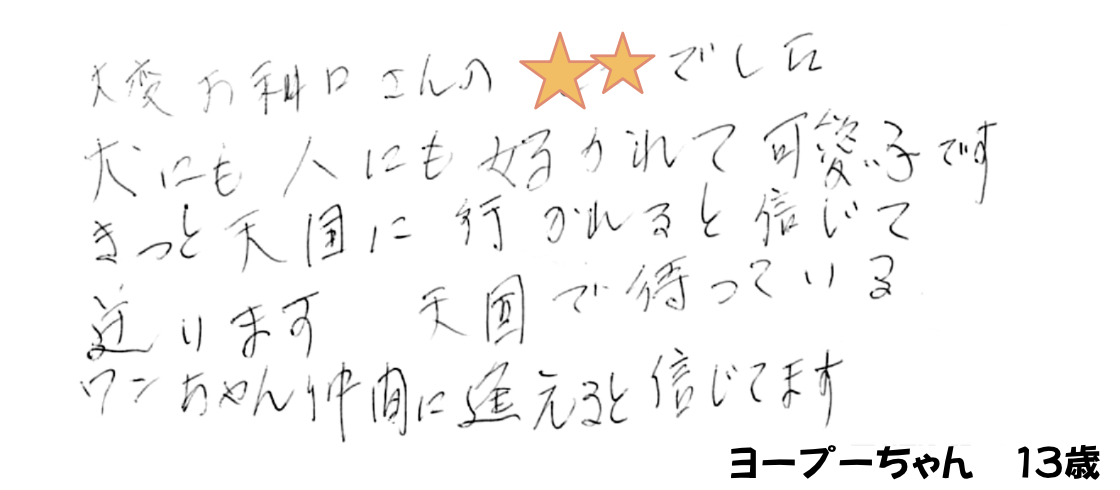 大変お利口さんの でした
犬にも人にも好かれて可愛い子です
きっと天国に行かれると信じて
送ります 天国で待っている
ワンちゃん仲間に逢えると信じてます
ヨープーちゃん 13歳